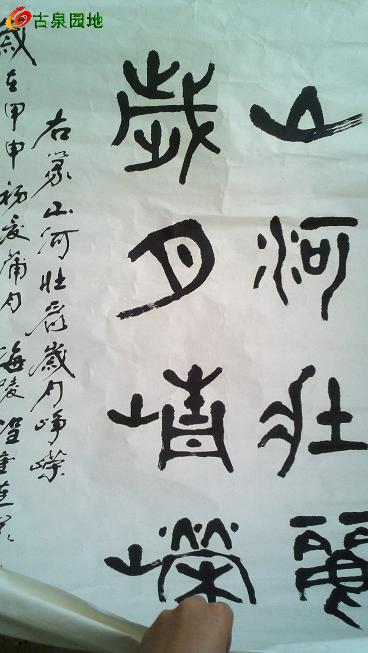 古泉园地
山河壯麗
歲月崝嶸
右篆山河壯麗歲月崢嶸
歲在甲申初夏蒲月海陵